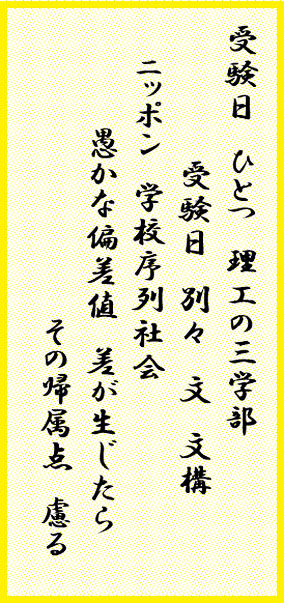 受験日　ひとつ　理工の三学部
受験日　別々　文　文構
ニッポン　学校序列社会
愚かな偏差値　差が生じたら
その帰属点　慮る